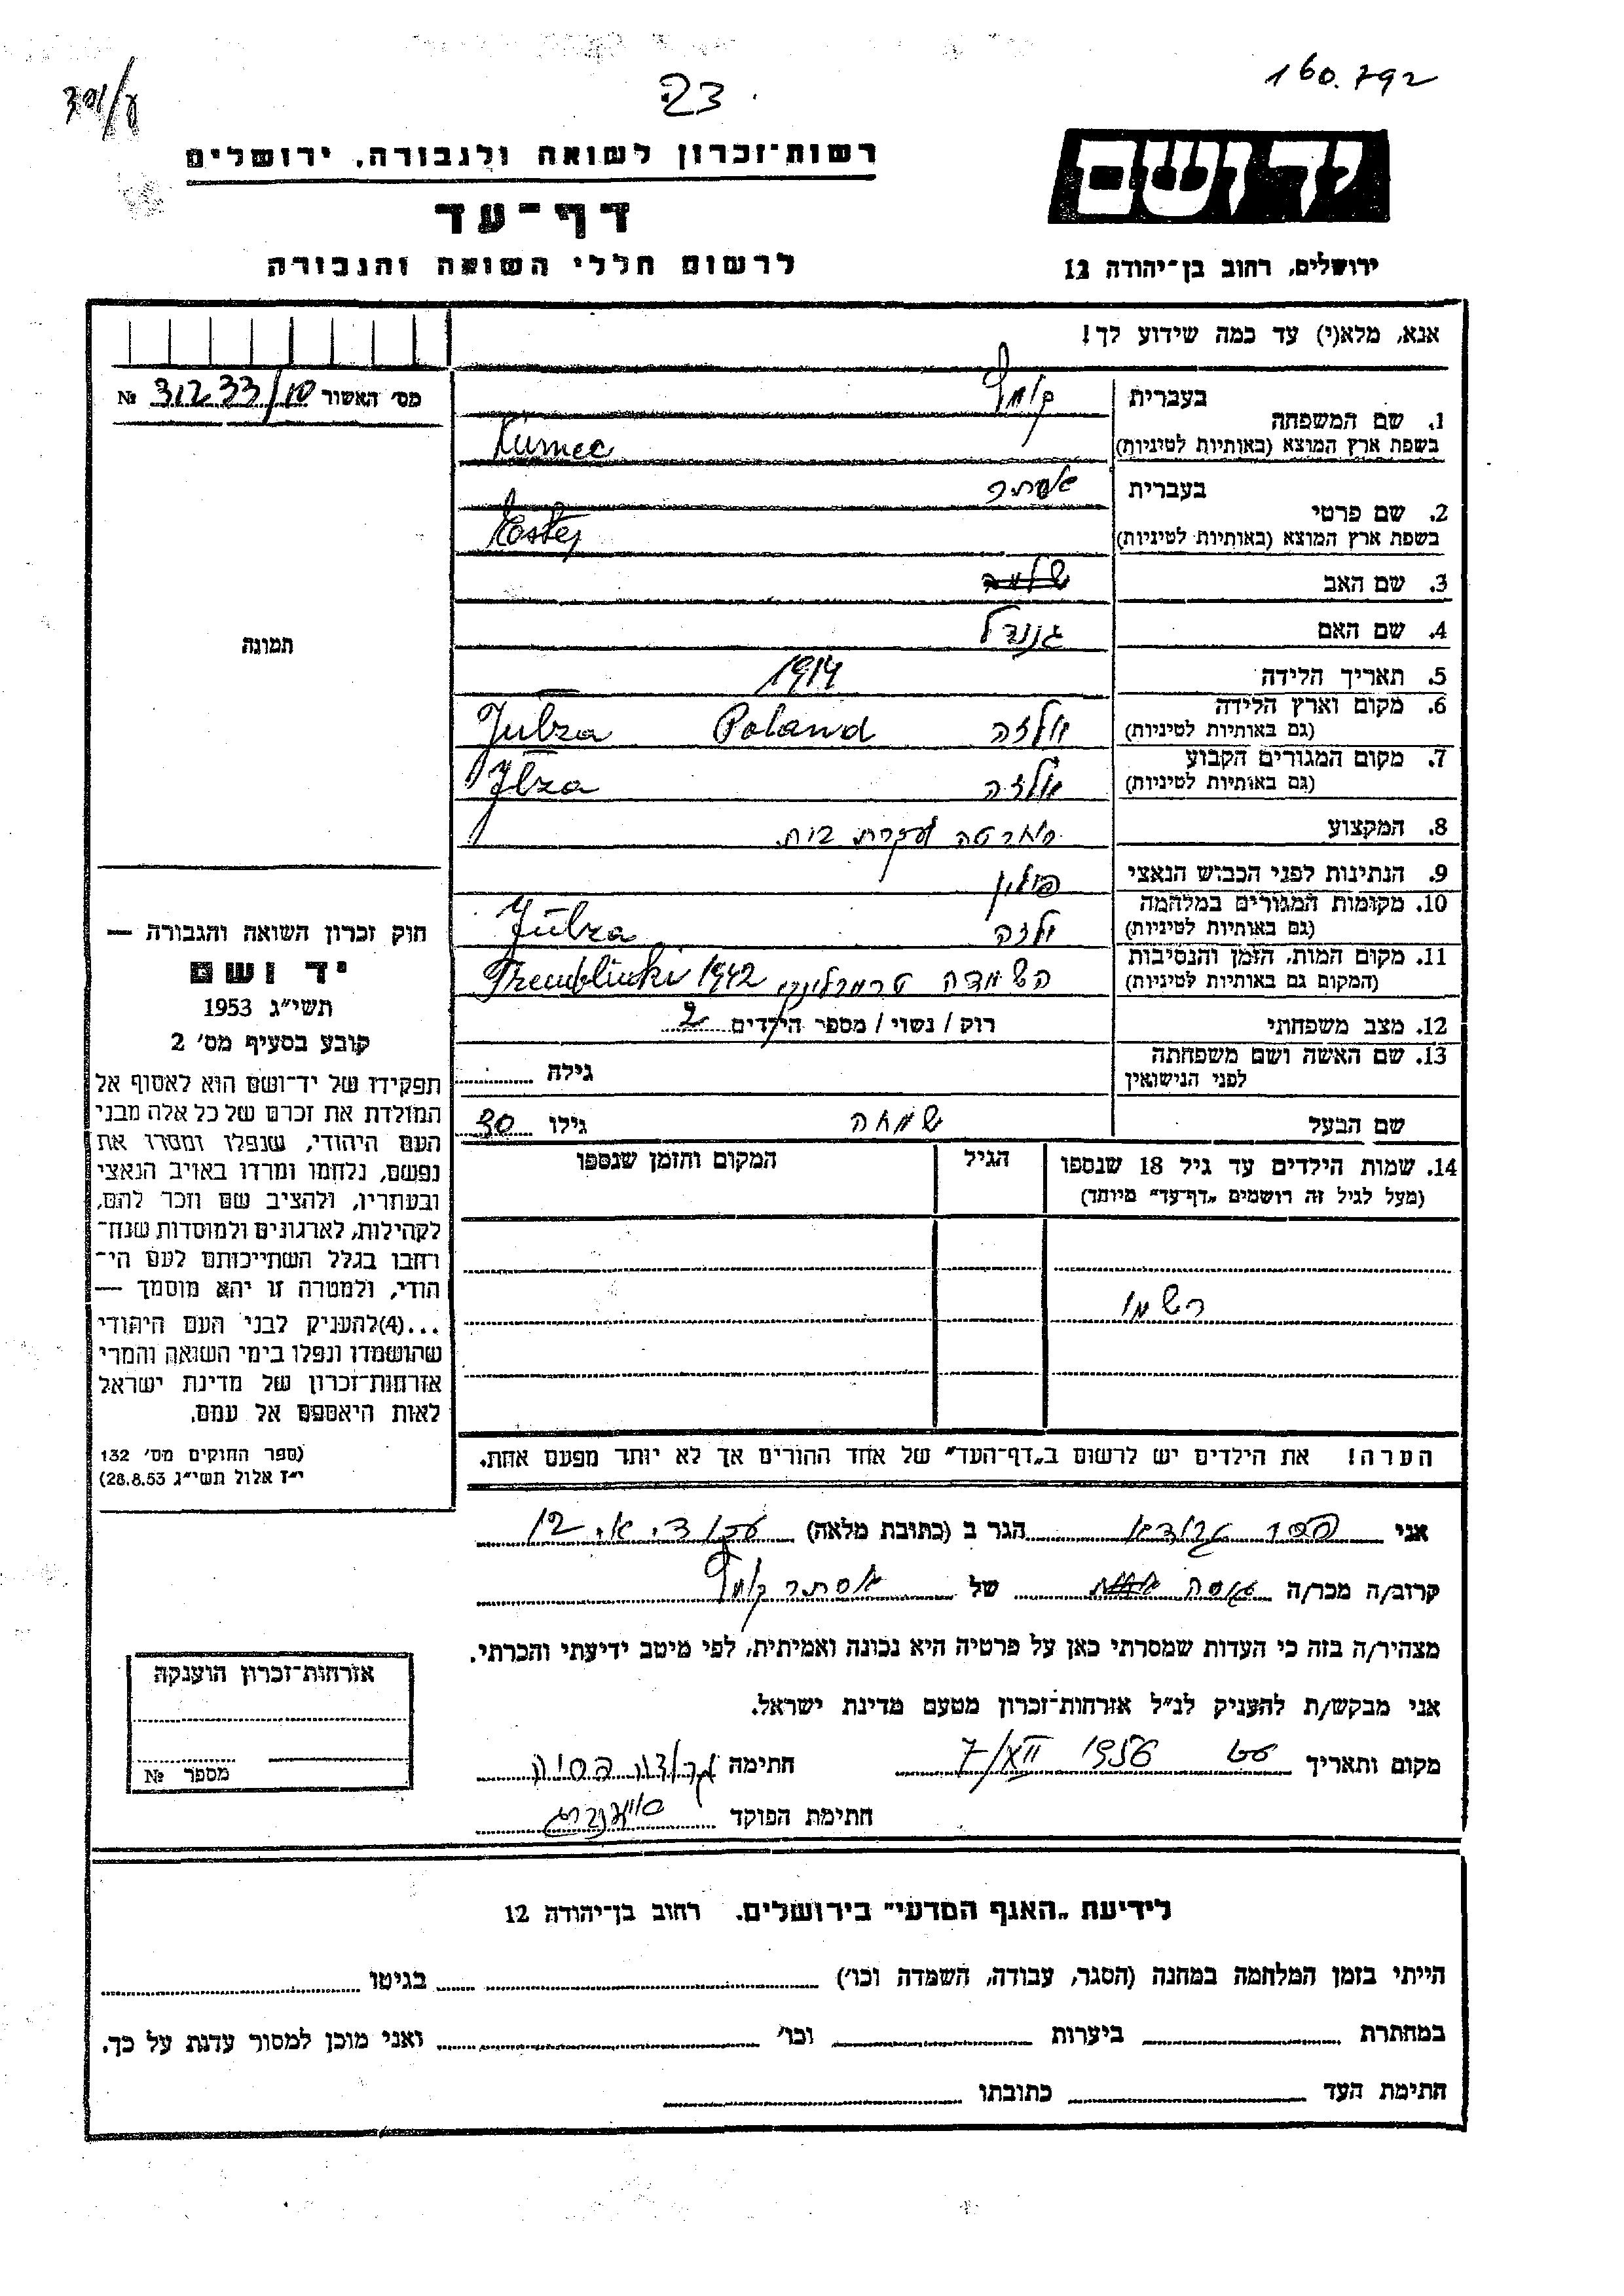 160.792
23
רשות־זכרון לשואה ולגבורה, ירושלים
דף־עד
לרשום חללי השואה והגבורה
יד ושם
ירושלים, רחוב בן־יהודה 12
אנא, מלא(י) עד כמה שידוע לך!
מס׳ האשור 31233/10 №
1. שם המשפחה
בעברית
בשפת ארץ המוצא (באותיות לטיניות) Kumec
2. שם פרטי
בעברית אסתר
בשפת ארץ המוצא (באותיות לטיניות)
3. שם האב
4. שם האם גננדל
5. תאריך הלידה 1914
6. מקום וארץ הלידה
(גם באותיות לטיניות) Poland
7. מקום המגורים הקבוע
(גם באותיות לטיניות) Ilza
8. המקצוע עקרת בית
9. הנתינות לפני הכביש הנאצי פולין
10. מקומות המגורים במלחמה
(גם באותיות לטיניות)
11. מקום המות, הזמן והנסיבות
(המקום גם באותיות לטיניות) השמדה 1942
12. מצב משפחתי רוק / נשוי / מספר הילדים 2
13. שם האשה ושם משפחתה
לפני הנישואין
גילה
שם הבעל שמחה גילו 30
14. שמות הילדים עד גיל 18 שנספו
(מעל לגיל זה רושמים „דף־עד״ מיוחד)
הגיל
המקום והזמן שנספו
רשמו
הערה! את הילדים יש לרשום ב„דף־העד״ של אחד ההורים אך לא יותר מפעם אחת.
תמונה
חוק זכרון השואה והגבורה —
יד ושם
תשי״ג 1953
קובע בסעיף מס׳ 2
תפקידו של יד־ושם הוא לאסוף אל
המולדת את זכרם של כל אלה מבני
העם היהודי, שנפלו ומסרו את
נפשם, נלחמו ומרדו באויב הנאצי
ובעוזריו, ולהציב שם וזכר להם,
לקהילות, לארגונים ולמוסדות שנח־
רבו בגלל השתייכותם לעם הי־
הודי, ולמטרה זו יהא מוסמך —
...(4)להעניק לבני העם היהודי
שהושמדו ונפלו בימי השואה והמרי
אזרחות־זכרון של מדינת ישראל
לאות היאספם אל עמם.
(ספר החוקים מס׳ 132
י״ז אלול תשי״ג 28.8.53)
אני הגר ב (כתובת מלאה)
קרוב/ה מכר/ה של אסתר
מצהיר/ה בזה כי העדות שמסרתי כאן על פרטיה היא נכונה ואמיתית, לפי מיטב ידיעתי והכרתי.
אני מבקש/ת להעניק לנ״ל אזרחות־זכרון מטעם מדינת ישראל.
מקום ותאריך 7/XII 1956 חתימה
חתימת הפוקד
אזרחות־זכרון הוענקה
מספר №
לידיעת „האגף המדעי״ בירושלים. רחוב בן־יהודה 12
הייתי בזמן המלחמה במחנה (הסגר, עבודה, השמדה וכו׳) בגיטו
במחתרת ביערות וכו׳ ואני מוכן למסור עדות על כך.
חתימת העד כתובתו